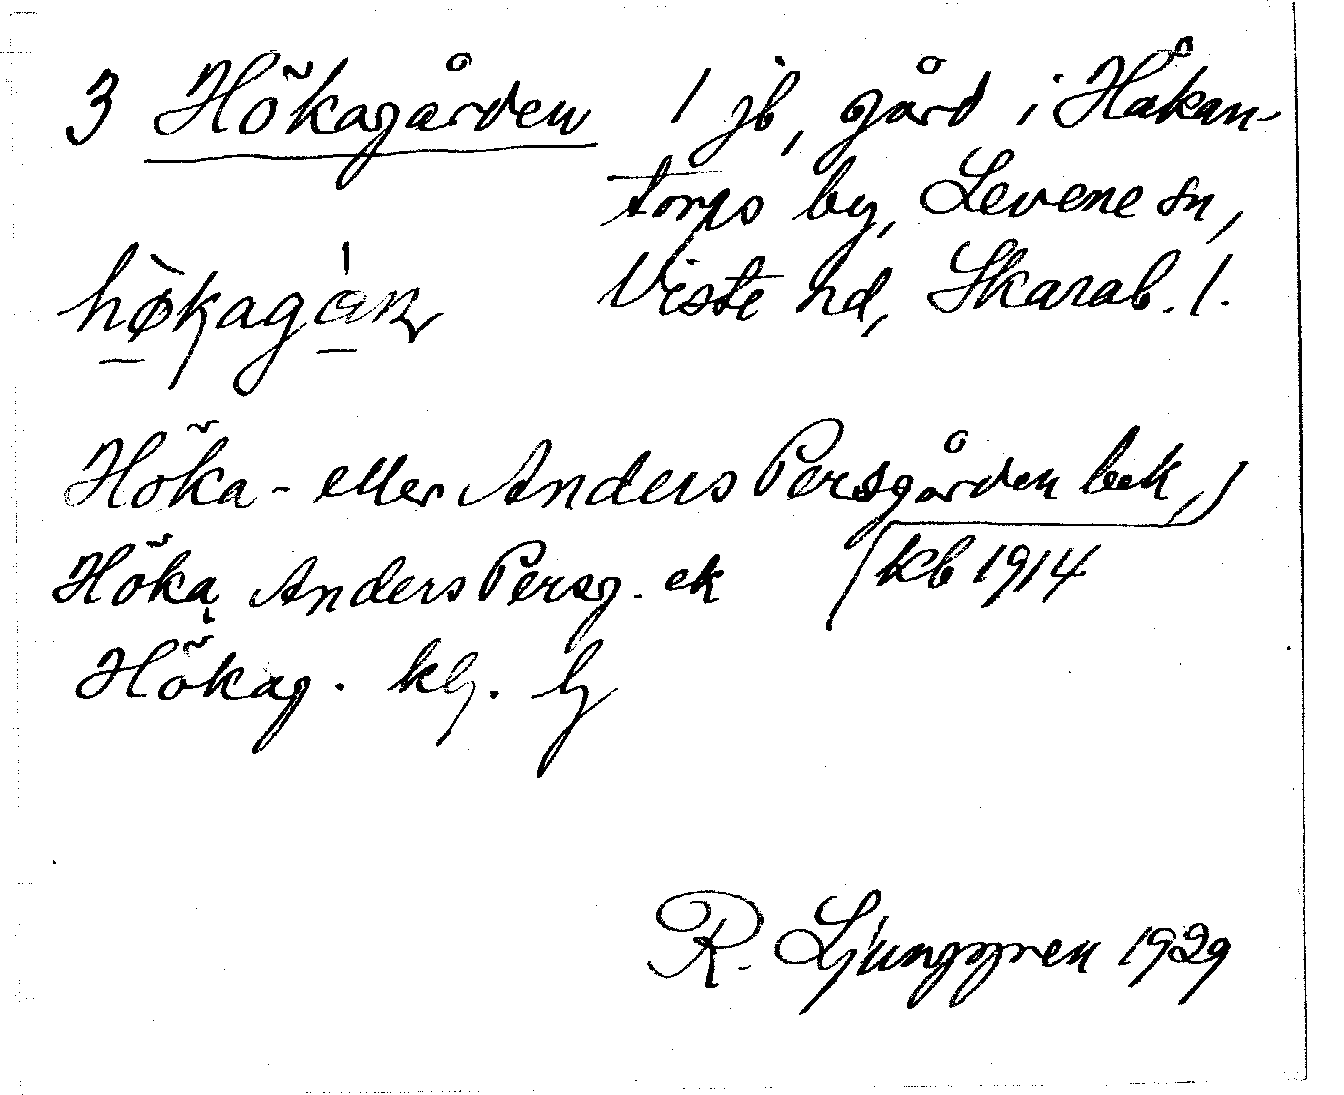 3 Hökagården 1 jb, gård i Håkan-
torps by, Levene sn,
Viste hd, Skarab. l.
Höka- eller Anders Persgården bek,
Höka, Anders Persg. ek
kb 1914
Hökag. kg. lg
R. Ljunggren 1929